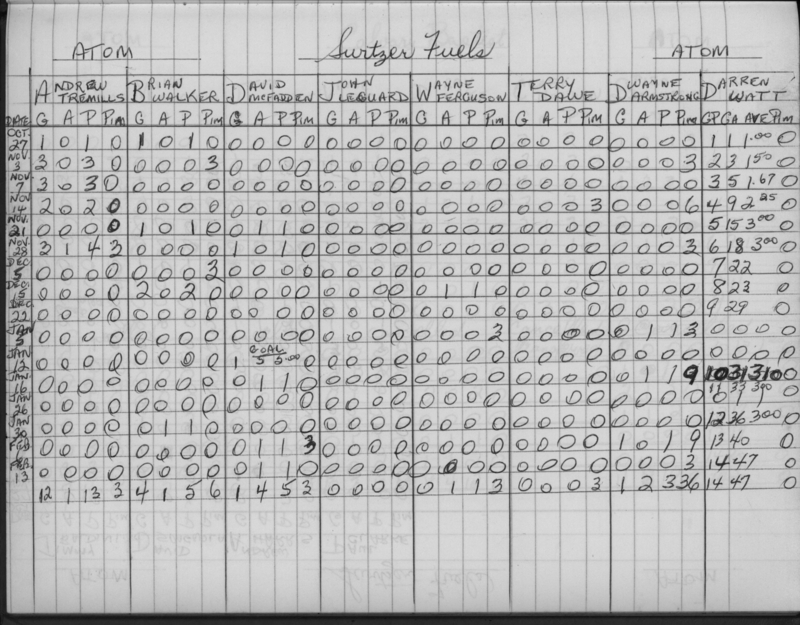 ATOM Surtzer Fuels ATOM
ANDREW TREMILLS BRIAN WALKER DAVID McFADDEN JOHN LEQUARD WAYNE FERGUSON TERRY DAWE DWAYNE ARMSTRONG DARREN WATT
DATE G A P Pim G A P Pim G A P Pim G A P Pim G A P Pim G A P Pim G A P Pim GP GA AVE Pim
OCT. 27 1 0 1 0 1 0 1 0 0 0 0 0 0 0 0 0 0 0 0 0 0 0 0 0 0 0 0 0 1 1 1.00 0
NOV. 3 3 0 3 0 0 0 0 3 0 0 0 0 0 0 0 0 0 0 0 0 0 0 0 0 0 0 0 3 2 3 1.50 0
NOV. 7 3 0 3 0 0 0 0 0 0 0 0 0 0 0 0 0 0 0 0 0 0 0 0 0 0 0 0 0 3 5 1.67 0
NOV 14 2 0 2 0 0 0 0 0 0 0 0 0 0 0 0 0 0 0 0 0 0 0 0 3 0 0 0 6 4 9 2.25 0
NOV. 21 0 0 0 0 1 0 1 0 0 1 1 0 0 0 0 0 0 0 0 0 0 0 0 0 0 0 0 0 5 15 3.00 0
NOV. 28 3 1 4 3 0 0 0 0 1 0 1 0 0 0 0 0 0 0 0 0 0 0 0 0 0 0 0 3 6 18 3.00 0
DEC 5 0 0 0 0 0 0 0 3 0 0 0 0 0 0 0 0 0 0 0 0 0 0 0 0 0 0 0 0 7 22 0
DEC. 15 0 0 0 0 2 0 2 0 0 0 0 0 0 0 0 0 0 1 1 0 0 0 0 0 0 0 0 0 8 23 0
DEC. 22 0 0 0 0 0 0 0 0 0 0 0 0 0 0 0 0 0 0 0 0 0 0 0 0 0 0 0 0 9 29 0
JAN 5 0 0 0 0 0 0 0 0 0 0 0 0 0 0 0 0 0 0 0 3 0 0 0 0 0 1 1 3 0 0 0 0
JAN 12 0 0 0 0 0 0 0 0 1 GOAL 5 5.00 0 0 0 0 0 0 0 0 0 0 0 0 0 0 0 0 0 0 0 0 0
JAN. 16 0 0 0 0 0 0 0 0 0 1 1 0 0 0 0 0 0 0 0 0 0 0 0 0 0 1 1 9 10 31 3.10 0
JAN 26 0 0 0 0 0 0 0 0 0 0 0 0 0 0 0 0 0 0 0 0 0 0 0 0 0 0 0 0
JAN 30 0 0 0 0 0 1 1 0 0 0 0 0 0 0 0 0 0 0 0 0 0 0 0 0 0 0 0 0 12 36 3.00 0
FEB. 0 0 0 0 0 0 0 0 0 1 1 3 0 0 0 0 0 0 0 0 0 0 0 0 1 0 1 9 13 40 0
FEB. 13 0 0 0 0 0 0 0 0 0 1 1 0 0 0 0 0 0 0 0 0 0 0 0 0 0 0 0 3 14 47 0
12 1 13 3 4 1 5 6 1 4 5 3 0 0 0 0 0 1 1 3 0 0 0 3 1 2 3 36 14 47 0